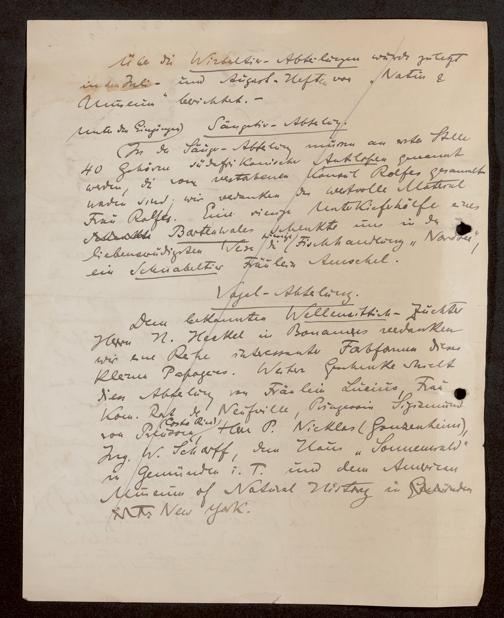 Über die Wirbeltier-Abteilungen wurde zuletzt
in den Juli- und August-Heften von „Natur &
Museum" berichtet. –
Unter den Eingängen Säugetier-Abteilung.
In der Säuge-Abteilung müssen an erster Stelle
40 Gehörne südafrikanischer Antilopen genannt
werden, die vom verstorbenen Konsul Rolfes gesammelt
worden sind; wir verdanken das wertvolle Material
Frau Rolfes. Eine riesige Unterkieferhälfte eines
Bartenwales schenkte uns in der
liebenswürdigsten Weise die Fischhandlung „Nordsee",
ein Schnabeltier Fräulein Amschel.
Vogel-Abteilung.
Dem bekannten Wellensittich-Züchter
Herrn N. Heckel in Bonames verdanken
wir eine Reihe interessanter Farbformen dieses
kleinen Papageis. Weitere Geschenke erhielt
diese Abteilung von Fräulein Lucius, Frau
Kom. Rat de Neufville, Prinzessin Sigismund
von Preussen (Costa Rica), Herr P. Nicklas (Gonzenheim),
Ing. W. Scharff, dem Haus „Sonnenwald"
in Gemünden i. T. und dem American
Museum of Natural History in Gemünden
i. T. New York.